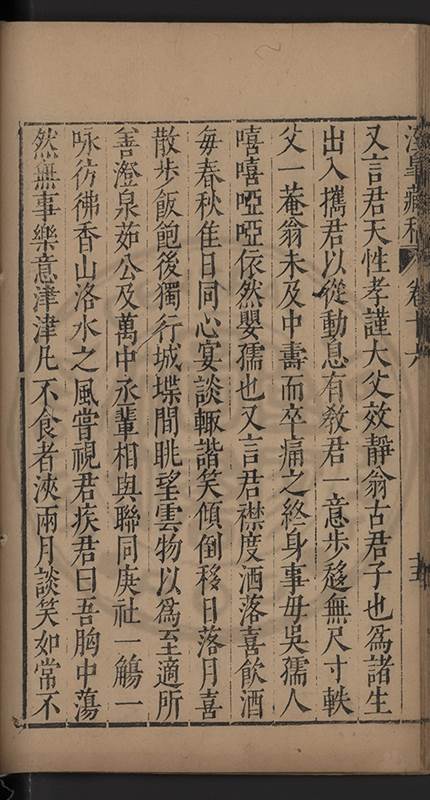 又言君天性孝謹大父效靜翁古君子也爲諸生
出入攜君以從動息有敎君一意步趍無尺寸軼
父一菴翁未及中壽而卒痛之終身事毋吳孺人
嘻嘻啞啞依然嬰孺也又言君襟度洒落喜飲酒
每春秋佳日同心宴談輙諧笑傾倒移日落月喜
散步飯飽後獨行城堞間眺望雲物以爲至適所
善澄泉茹公及萬中丞輩相與聯同庚社一觴一
咏彷彿香山洛水之風嘗視君疾君曰吾胸中蕩
然無事樂意津津凡不食者浹兩月談笑如常不
藏稿 卷十六